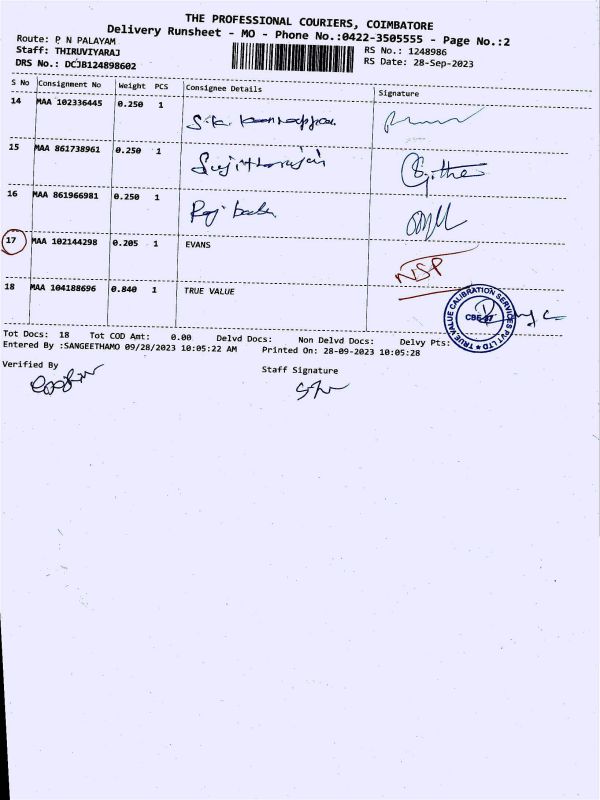 THE PROFESSIONAL COURIERS, COIMBATORE
Delivery Runsheet - MO - Phone No.:0422-3505555 - Page No.:2
Route: P N PALAYAM
RS No.: 1248986
Staff: THIRUVIYARAJ
RS Date: 28-Sep-2023
DRS No.: DCJB124898602
S No Consignment No Weight PCS Consignee Details Signature
14 MAA 102336445 0.250 1
15 MAA 861738961 0.250 1
16 MAA 861966981 0.250 1
17 MAA 102144298 0.205 1 EVANS
NSP
18 MAA 104188696 0.840 1 TRUE VALUE
TRUE VALUE CALIBRATION SERVICES PVT LTD
Tot Docs: 18 Tot COD Amt: 0.00 Delvd Docs: Non Delvd Docs: Delvy Pts:
Entered By :SANGEETHAMO 09/28/2023 10:05:22 AM Printed On: 28-09-2023 10:05:28
Verified By
Staff Signature